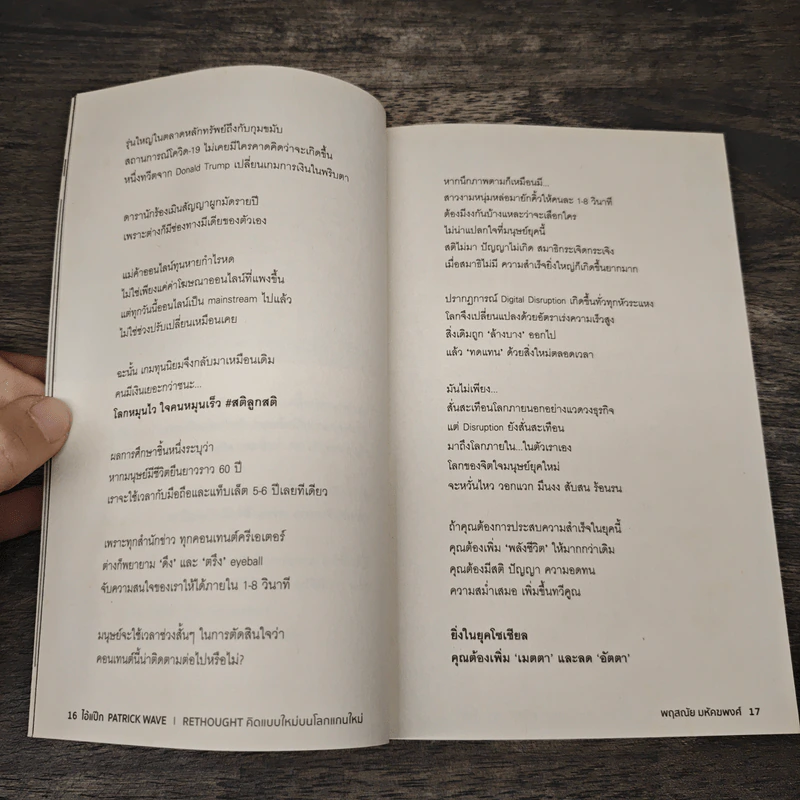 รุ่นใหญ่ในตลาดหลักทรัพย์ถึงกับกุมขมับ
สถานการณ์โควิด-19 ไม่เคยมีใครคาดคิดว่าจะเกิดขึ้น
หนึ่งทวีตจาก Donald Trump เปลี่ยนเกมการเงินในพริบตา
ดารานักร้องเมินสัญญาผูกมัดรายปี
เพราะต่างก็มีช่องทางมีเดียของตัวเอง
แม่ค้าออนไลน์ทุนหายกำไรหด
ไม่ใช่เพียงแค่ค่าโฆษณาออนไลน์ที่แพงขึ้น
แต่ทุกวันนี้ออนไลน์เป็น mainstream ไปแล้ว
ไม่ใช่ช่วงปรับเปลี่ยนเหมือนเคย
ฉะนั้น เกมทุนนิยมจึงกลับมาเหมือนเดิม
คนมีเงินเยอะกว่าชนะ...
โลกหมุนไว ใจคนหมุนเร็ว #สติลูกสติ
ผลการศึกษาชิ้นหนึ่งระบุว่า
หากมนุษย์มีชีวิตยืนยาวราว 60 ปี
เราจะใช้เวลากับมือถือและแท็บเล็ต 5-6 ปีเลยทีเดียว
เพราะทุกสำนักข่าว ทุกคอนเทนต์ครีเอเตอร์
ต่างก็พยายาม ‘ดึง’ และ ‘ตรึง’ eyeball
จับความสนใจของเราให้ได้ภายใน 1-8 วินาที
มนุษย์จะใช้เวลาช่วงสั้นๆ ในการตัดสินใจว่า
คอนเทนต์นี้น่าติดตามต่อไปหรือไม่?
16 ไอ้แป๊ก PATRICK WAVE | RETHOUGHT คิดแบบใหม่บนโลกแกนใหม่
หากนึกภาพตามก็เหมือนมี...
สาวงามหนุ่มหล่อมายักคิ้วให้คนละ 1-8 วินาที
ต้องมีงงกันบ้างแหละว่าจะเลือกใคร
ไม่น่าแปลกใจที่มนุษย์ยุคนี้
สติไม่มา ปัญญาไม่เกิด สมาธิกระเจิดกระเจิง
เมื่อสมาธิไม่มี ความสำเร็จยิ่งใหญ่ก็เกิดขึ้นยากมาก
ปรากฏการณ์ Digital Disruption เกิดขึ้นทั่วทุกหัวระแหง
โลกจึงเปลี่ยนแปลงด้วยอัตราเร่งความเร็วสูง
สิ่งเดิมถูก ‘ล้างบาง’ ออกไป
แล้ว ‘ทดแทน’ ด้วยสิ่งใหม่ตลอดเวลา
มันไม่เพียง...
สั่นสะเทือนโลกภายนอกอย่างแวดวงธุรกิจ
แต่ Disruption ยังสั่นสะเทือน
มาถึงโลกภายใน...ในตัวเราเอง
โลกของจิตใจมนุษย์ยุคใหม่
จะหวั่นไหว วอกแวก มึนงง สับสน ร้อนรน
ถ้าคุณต้องการประสบความสำเร็จในยุคนี้
คุณต้องเพิ่ม ‘พลังชีวิต’ ให้มากกว่าเดิม
คุณต้องมีสติ ปัญญา ความอดทน
ความสม่ำเสมอ เพิ่มขึ้นทวีคูณ
ยิ่งในยุคโซเชียล
คุณต้องเพิ่ม ‘เมตตา’ และลด ‘อัตตา’
พฤสณัย มหัคฆพงศ์ 17